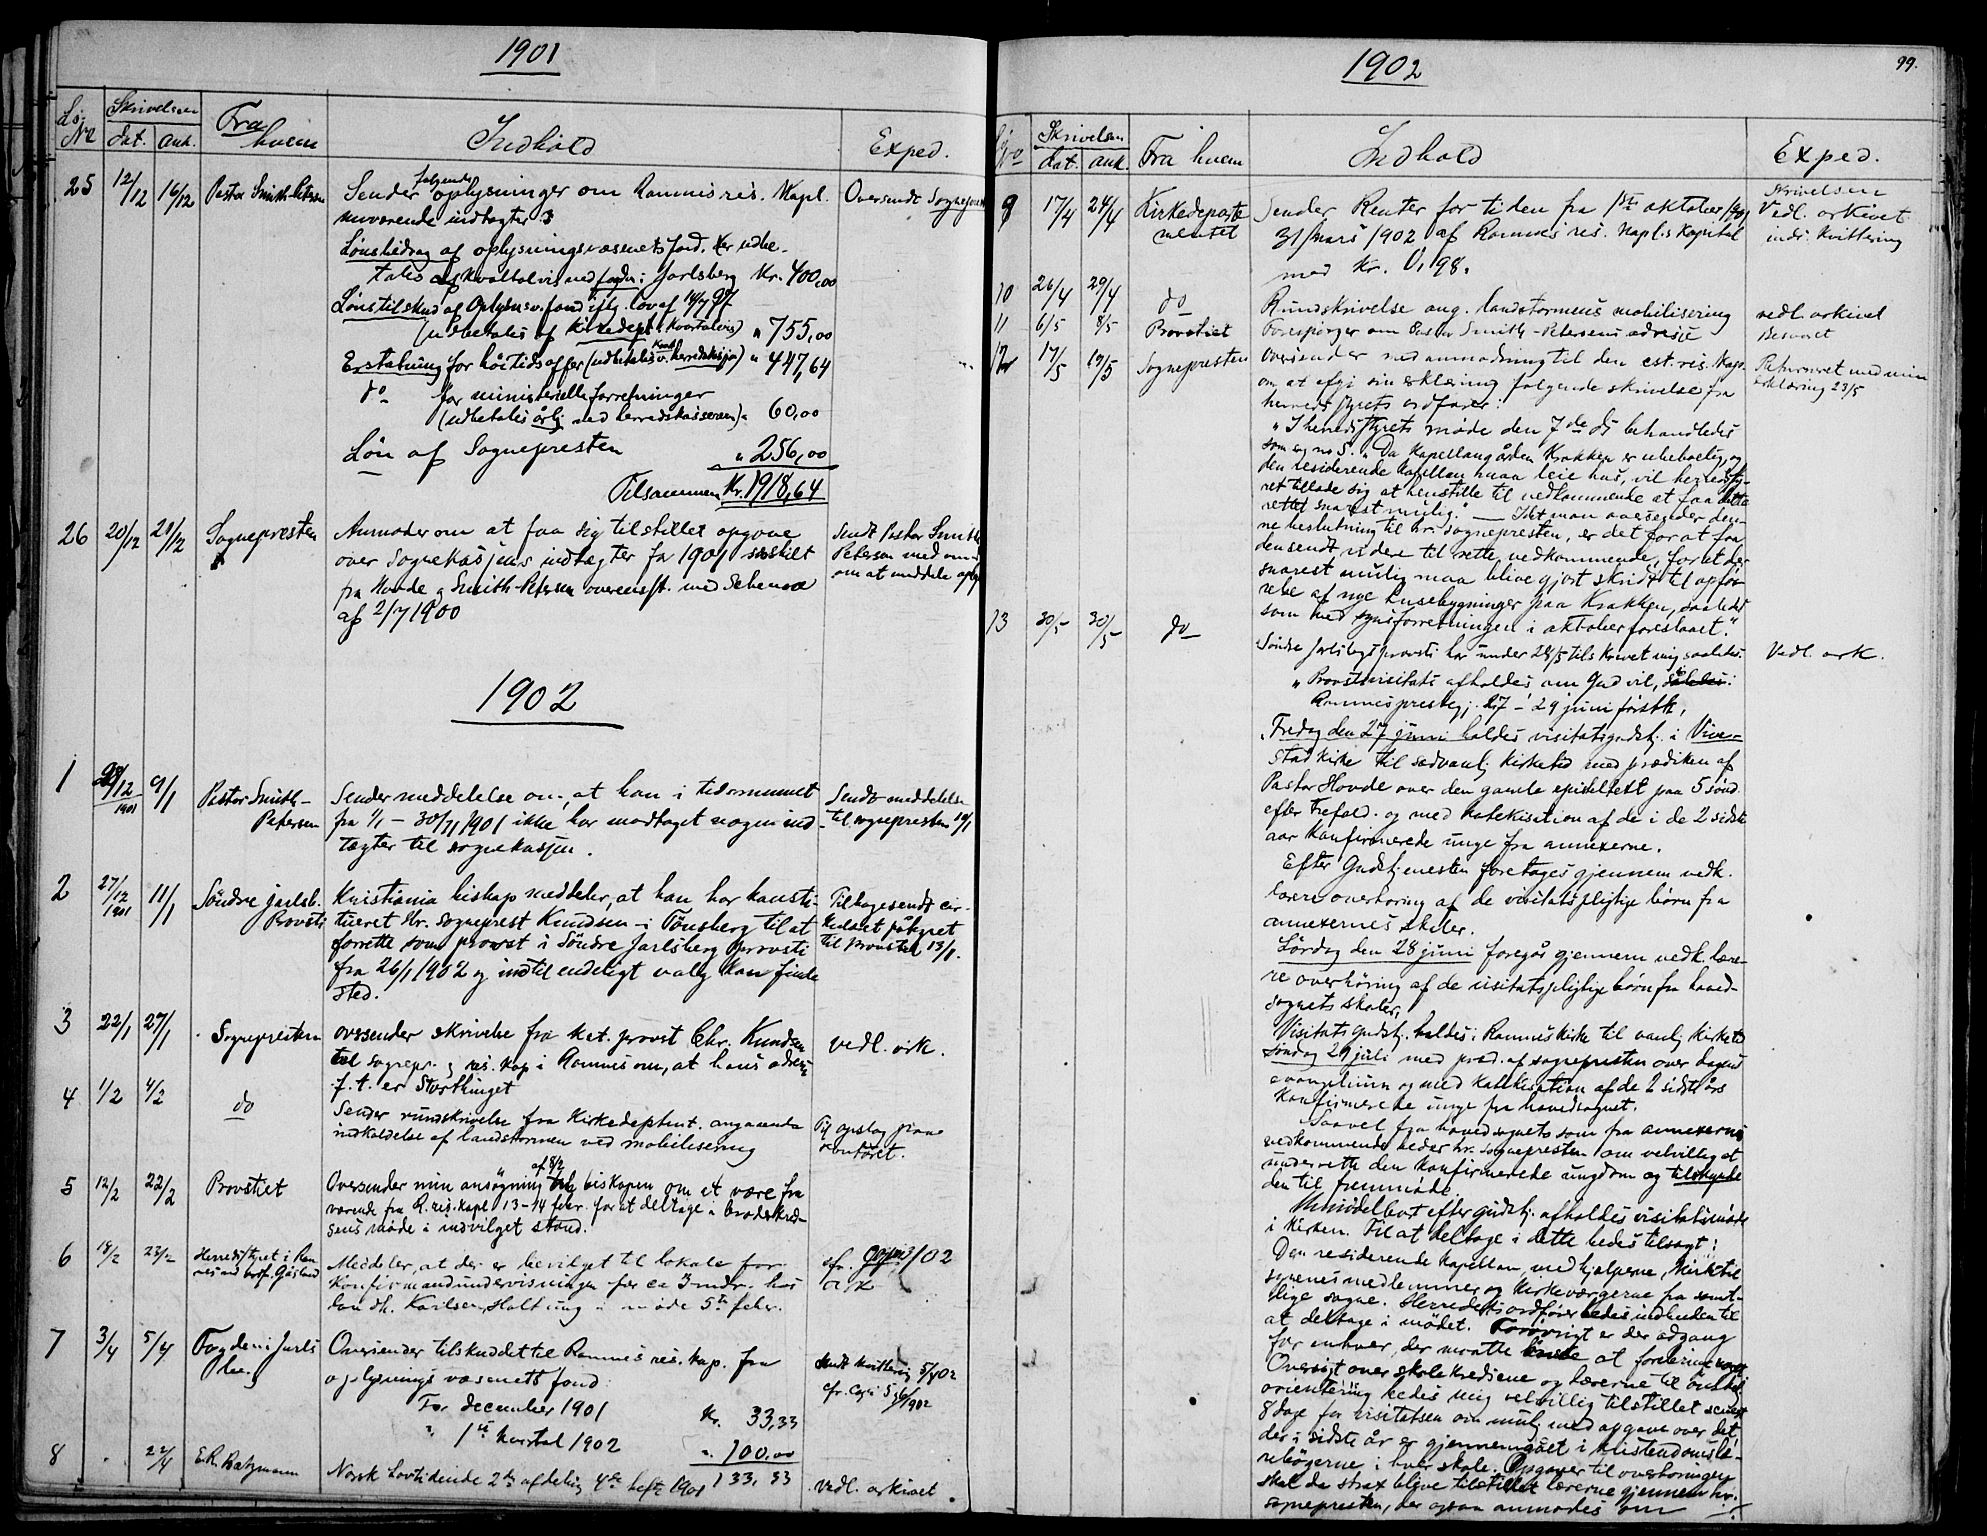 1901
Lø. No Skrivelsen dat. ank. Fra hvem Indhold Exped.
25 12/12 16/12 Pastor Smith-Petersen Sender følgende oplysninger om Ramnes res. Kapl. Oversendt Sognepresten
nuværende indtægter
Lønsbidrag af oplysningsvæsenets fond. Her udbe-
tales kvartalvis ved fogden i Jarlsberg Kr. 400,00
Lønstilskud af Oplysnsv. fond iflg. lov af 14/7 97
(udbetales af Kirkedept. Kvartalvis) " 755,00
Erstatning for høitidsoffer (udbetales Kvart. v. herredskasse) " 447,64
do for ministerielle forretninger
(udbetales årlig ved herredskasseren) " 60,00
Løn af Sognepresten " 256,00
Tilsammen Kr. 1918,64
26 20/12 21/12 Sognepresten Anmoder om at faa sig tilstillet opgave Sendt Pastor Smith
over Sognekassens indtægter for 1901 særskilt Petersen med anm.
fra Hovde og Smith-Petersen overensst. med Schema om at meddele oply
af 2/7 1900
1902
1 28/12 1901 9/1 Pastor Smith- Sender meddelelse om, at han i tidsrummet Sendt meddelelse
Petersen fra 1/1 – 30/11 1901 ikke har modtaget nogen ind- til sognepresten 10/1
tægter til sognekassen.
2 27/12 1901 11/1 Søndre Jarlsb. Kristiania biskop meddeler, at han har konsti- Tilbagesendt cir-
Provsti tueret Hr. sogneprest Knudsen i Tønsberg til at kulæret påtegnet
forrette som provst i Søndre Jarlsberg provsti til Provstiet 13/1.
fra 26/1 1902 og indtil endeligt valg kan finde
sted.
3 22/1 27/1 Sognepresten oversender skrivelse fra kst. provst Chr. Knudsen vedl. ark.
til sognepr. og res. kap. i Ramnes om, at hans adresse
f. t. er Storthinget
4 1/2 4/2 do Sender rundskrivelse fra Kirkedeptmt. angaaende Til opslag paa
indkaldelse af landstormen ved mobilisering kontoret.
5 12/2 22/2 Provstiet Oversender min ansøgning af 8/2 til biskopen om at være fra
værende fra R. res. kapl. 13–14 febr. for at deltage i broderkred-
sens møde i indvilget stand.
6 18/2 23/2 Herredstyret i Ram-
nes ved ordf. Gåsland Meddeler, at der er bevilget til lokale for cfr.
konfirmandundervisningen for ca 3 mdr. hos
landh. Karlsen, Holtung i møde 5te febr.
7 3/4 5/4 Fogden i Jarls- Oversender tilskuddet til Ramnes res. kap. fra Sendt kvittering 5/4 02
oplysningsvæsenets fond: cfr. Copi S. 5 6/4 1902
For december 1901 Kr. 33,33
" 1ste kvartal 1902 " 100,00
133,33
8 " 22/4 E.R. Ratzmann Norsk Lovtidende 2den afdeling 4de hefte 1901 vedl. arkivet.
1902 99.
Lø. No Skrivelsen dat. ank. Fra hvem Indhold Exped.
9 17/4 24/4 Kirkedeparte- Sender Renter for tiden fra 1ste oktober 1901 Skrivelsen
mentet 31 mars 1902 af Ramnes res. kapl.s kapital Vedl. arkivet
med Kr. 0,98. inds. Kvittering
10 26/4 29/4 do Rundskrivelse ang. landstormens mobilisering vedl. arkivet
11 6/5 8/5 Provstiet Forespørger om Pastor Smith-Petersens adresse Besvaret
12 17/5 19/5 Sognepresten Oversender med anmodning til den cst. res. Kap. Returneret med min
om at afgi sin erklæring følgende skrivelse fra erklæring 23/5
herredsstyrets ordfører:
"I herredsstyrets møde den 7de ds behandledes
som sag no 5. "Da Kapellangården Krakken er ubeboelig, og
den residerende Kapellan maa leie hus, vil herredssty-
ret tillade sig at henstille til vedkommende at faa dette
rettet snarest mulig." — Idet man oversender den-
ne beslutning til hr. sognepresten, er det for at faa
den sendt videre til rette vedkommende, for at der
snarest mulig maa blive gjort skridt til opfør-
relse af nye husebygninger paa Krakken, saaledes
som ved synsforretningen i oktober foreslaaet."
13 30/5 30/5 do Søndre Jarlsbergs provsti har under 28/5 tilskrevet mig saaledes: Vedl. ark.
"Provstevisitats afholdes om Gud vil, således:
Ramnes prestegj. 27 – 29 juni førstk.
"Fredag den 27 juni holdes visitatsgudstj. i Vive-
stad kirke til sedvanlig kirketid med prædiken af
Pastor Hovde over den gamle episteltext paa 5 sønd.
efter Trefold. og med katekisation af de i de 2 sidste
aar konfirmerede unge fra annexerne.
Efter Gudstjenesten foretages gjennem vedk.
lærere overhøring af de visitatspligtige børn fra
annexernes skoler.
Lørdag den 28 juni foregår gjennem vedk. lære-
re overhøring af de visitatspligtige børn fra hoved-
sognets skoler.
Visitatsgudstj. holdes i Ramnes Kirke til vanlig kirketid
søndag 29 juli med præd. af sognepresten over dagens
evangelium og med katekisation af de 2 sidste års
konfirmerede unge fra hovedsognet.
Saavel fra hovedsognets som fra annexernes
vedkommende beder hr. sognepresten om velvilligst
underrette den konfirmerede ungdom og tilskynde
den til fremmøde.
Umiddelbart efter gudstj. afholdes visitatsmøde
i kirken. Til at deltage i dette bedes tilsagt:
Den residerende kapellan, medhjelperne, kirketil-
synsmedlemmer og kirkeværgerne fra samt-
lige sogne. Herredets ordfører bedes indbuden til
at deltage i mødet. Forøvrigt er der adgang
for enhver, der måtte ønske at forebringe noget
Oversigt over skolekredsene og lærerne til ønskelig
orientering bedes mig velvillig tilstillet senest
8 dage før visitatsen om mulig med opgave over det,
der i sidste år er gjennemgået i kristendomslæ-
rebøgerne i hver skole. Opgaver til overhøringen
skal da strax blive tilstillet lærerne gjennem hr.
sognepresten, der ogsaa anmodes om